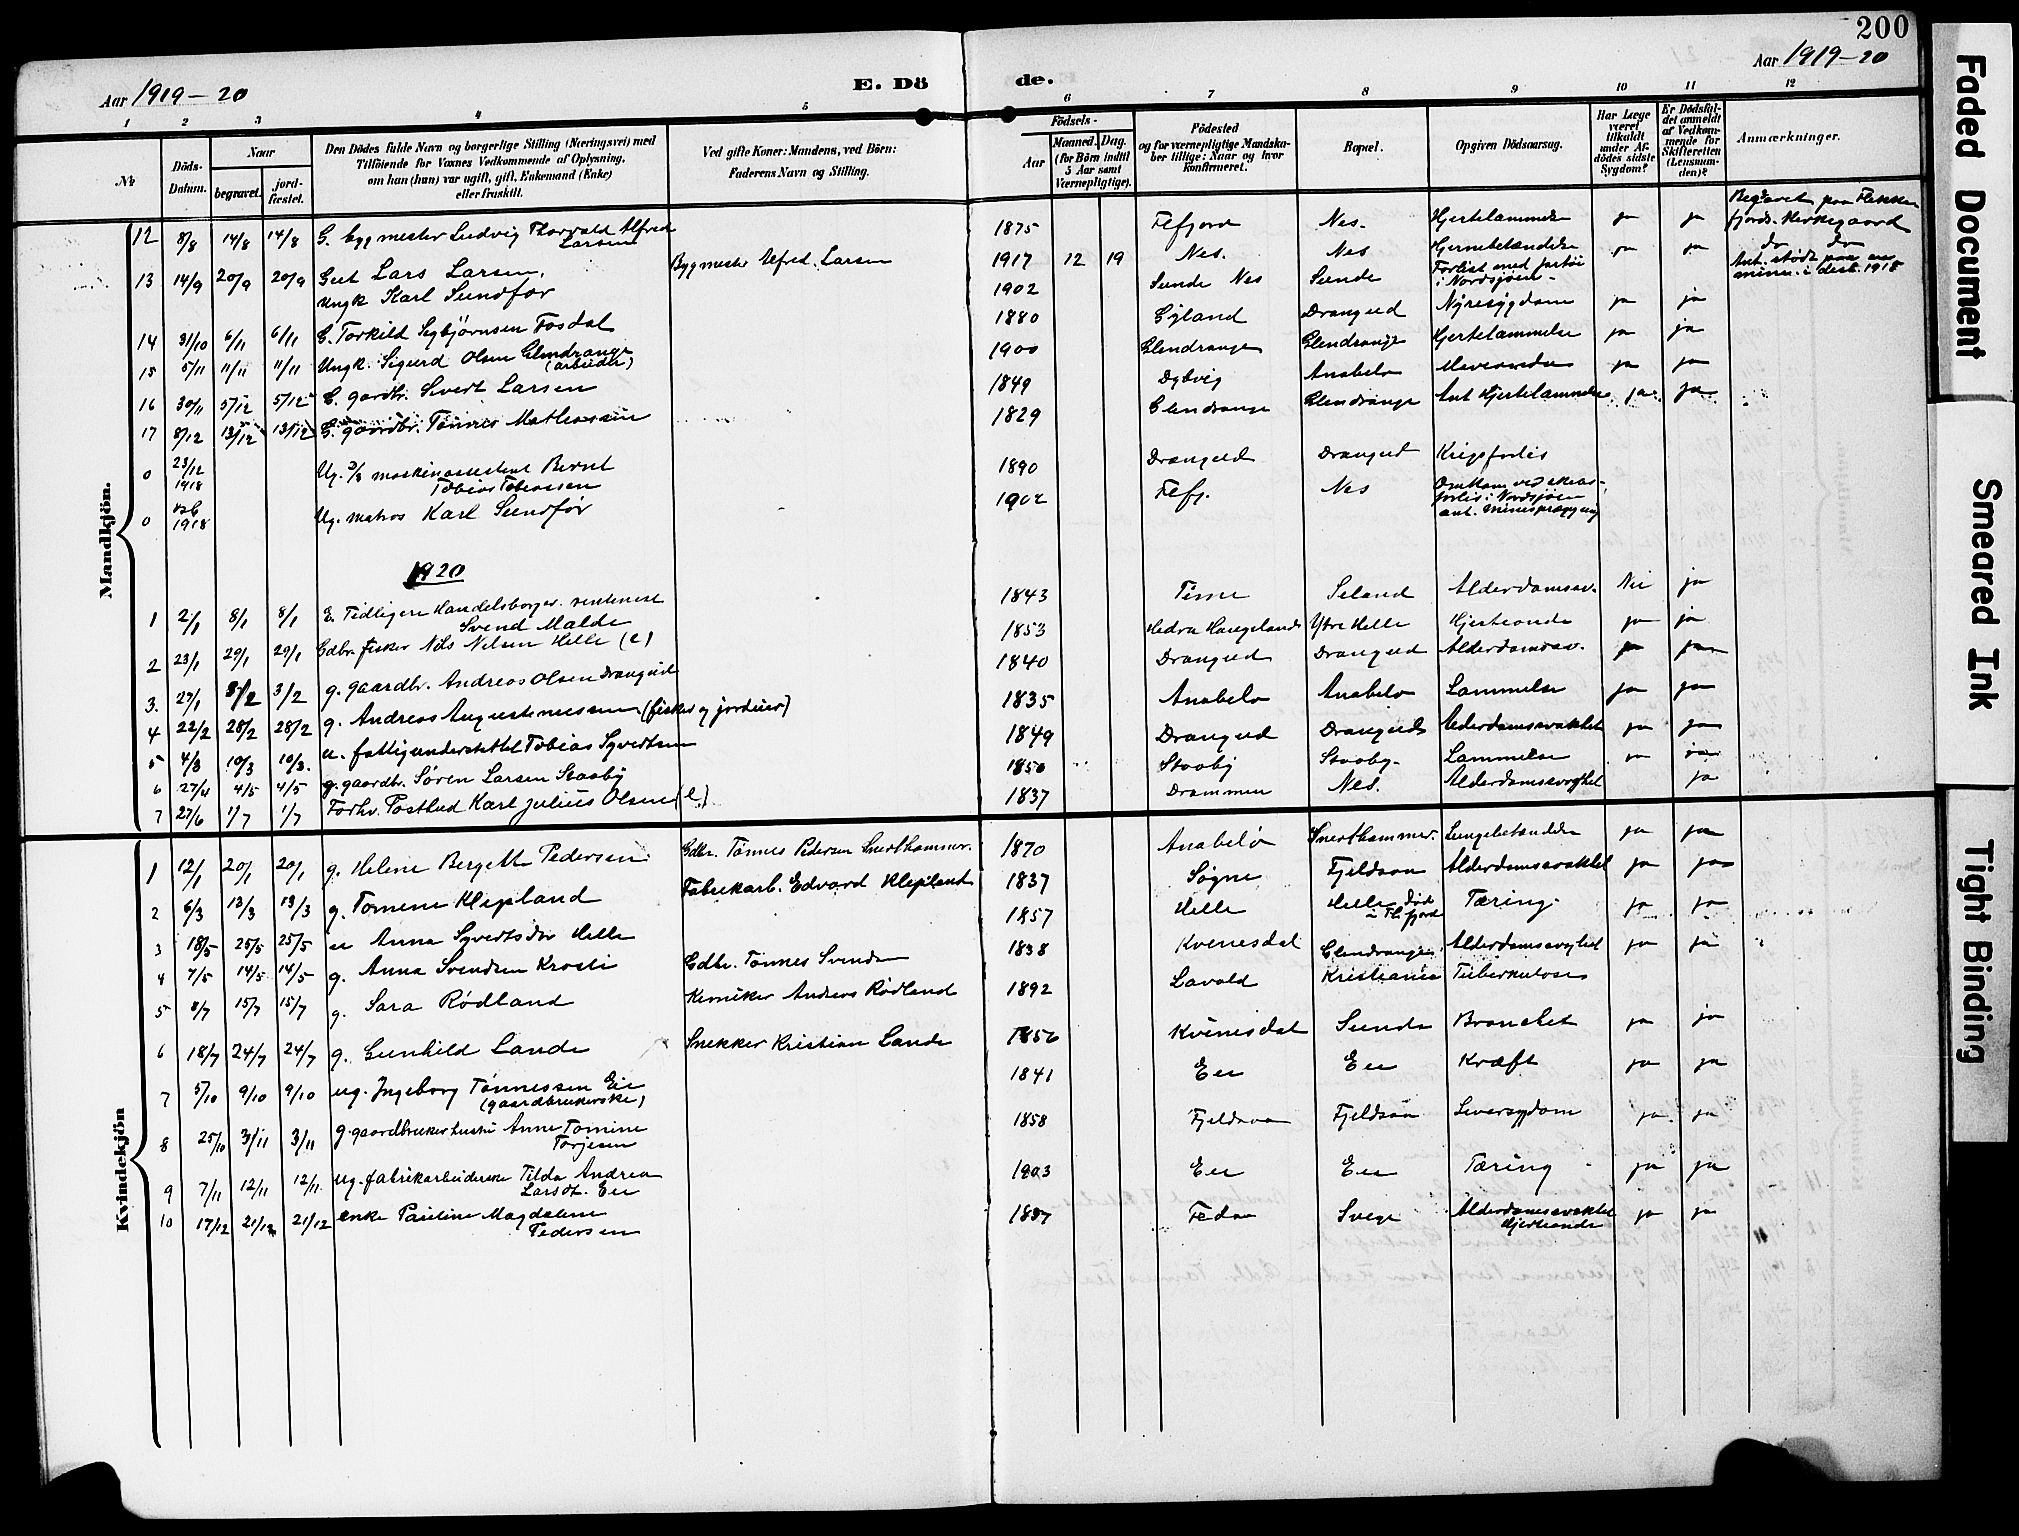 200
Aar 1919-20
E. Dö
de.
Aar 1919-20
1 2 3 4 5 6 7 8 9 10 11 12
No
Döds-Datum.
Naar
begravet.
jord-fæstet.
Den Dödes fulde Navn og borgerlige Stilling (Næringsvei) med
Tilföiende for Voxnes Vedkommende af Oplysning,
om han (hun) var ugift, gift, Enkemand (Enke)
eller fraskilt.
Ved gifte Koner: Mandens, ved Börn:
Faderens Navn og Stilling.
Födsels-
Aar
Maaned.
Dag.
(for Börn indtil
5 Aar samt
Værnepligtige).
Födested
og for værnepligtige Mandska-
ber tillige: Naar og hvor
konfirmeret.
Bopæl.
Opgiven Dödsaarsag.
Har Læge
været
tilkaldt
under Af-
dödes sidste
Sygdom?
Er Dödsfal-
det anmeldt
af Vedkom-
mende for
Skifteretten
(Lensman-
den)?
Anmærkninger.
Mandkjön.
12 8/8 14/8 14/8 G. bygmester Ludvig Thorvald Alfred Larsen 1875 Flefjord Nes. Hjertelammelse ja ja Begravet paa Flekke fjords Kirkegaard
13 14/9 20/9 20/9 Gut Lars Larsen. Bygmester Alfred Larsen 1917 12 19 Nes. Nes Hjernebetændelse ja ja do do
Ungk Karl Sundfør 1902 Sunde Nes Sunde Forlist med fartøi i Nordsjøen - Ant. stødt paa en mine i desb. 1918
14 31/10 6/11 6/11 G. Torkild Sigbjørnsen Fosdal 1880 Gyland Drangeid Nyresygdom ja ja
15 5/11 11/11 11/11 Ungk. Sigurd Olsen Glendrange (arbeider) 1900 Glendrange Glendrange Hjertelammelse ja ja
16 30/11 5/12 5/12 G. gardbr. Sivert Larsen 1849 Dybvig Anabelø ja ja
17 8/12 13/12 13/12 G. gaardbr. Tønnes Mathiassen 1829 Glendrange Glendrange Ant Hjertelammelse ja. ja
0 23/12 1918 Ug. maskinassistent Bernt Tobias Tobiassen 1890 Drangeid Drangeid Krigsforlis
0 1918 Ug. matros Karl Sundfør 1902 Flefj. Nes Omkom ved forlis i Nordsjøen ant. minesprægning
1920
1 2/1 8/1 8/1 E. Tidligere Handelsborger. rentenist Svend Malde 1843 Time Seland Alderdomssv. Nei ja
2 23/1 29/1 29/1 Gdbr fisker Nils Nilsen Helle (e) 1853 Hedra Haugeland Ytre Helle Hjerteonde ja ja
3. 27/1 3/2 3/2 g. gaardbr. Andreas Olsen Drangeid 1840 Drangeid Drangeid Alderdomssv. ja ja
4 22/2 28/2 28/2 g. Andreas Augustinussen (fisker og jordeier) 1835 Anabelø Anabelø Lammelse ja ja
5 4/3 10/3 10/3. u. fattigunderstøttet Tobias Syvertsen 1849 Drangeid Drangeid Alderdomssvakhet ja ja
6 27/4 4/5 4/5 g. gaardbr. Søren Larsen Staaby 1850 Staaby Staaby. Lammelse ja
7 27/6 1/7 1/7 Forhv. Postbud Karl Julius Olsen (e.) 1837 Drammen Nes. Alderdomssvaghet ja
Kvindekjön
1 12/1 20/1 20/1 g. Helene Bergette Pedersen Gdbr. Tønnes Pedersen Snerthammer. 1870 Anabelø Snerthammer. Lungebetændelse ja ja
2 6/3 13/3 13/3 g. Tomine Klepland Fabrikarb. Edvard Klepland 1837 Søgne Fjeldsaa Alderdomssvakhet ja ja
3 18/5 25/5 25/5 u Anna Syvertsdtr Helle 1857 Helle Helle død i Flefjord Tæring. ja ja
4 7/5 14/5 14/5 g. Anna Svendsen Krosli Gdbr. Tønnes Svendsen 1838 Kvinesdal Glendrange Alderdomssvaghet ja ja
5 8/7 15/7 15/7 g. Sara Rødland Kemiker Andreas Rødland 1892 Lavold Kristiania Tuberkulose
6 18/7 24/7 24/7 g. Gunhild Lande Snekker Kristian Lande 1856 Kvinesdal Sunde Bronchet ja ja
7 5/10 9/10 9/10 ug. Ingeborg Tønnessen Eie (gaardbrukerske) 1841 Eie Eie Kræft ja ja
8 25/10 3/11 3/11 g. gaardbrukerhustru Anne Tomine Torjesen 1858 Fjeldsaa Fjeldsaa Leversygdom ja ja
9 7/11 12/11 12/11. ug. fabrikarbeiderske Tilda Andrea Larsdt. Eie 1903 Eie Eie Tæring ja ja
10 17/12 21/12 21/12 enke Pauline Magdalene Pedersen 1837 Fedaa Svege Alderdomssvakhet Hjerteonde ja ja
Faded Document
Smeared Ink
Tight Binding